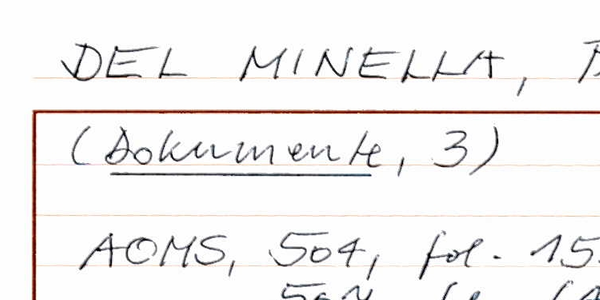 DEL MINELLA,
(Dokumente, 3)
AOMS, 504, fol. 15